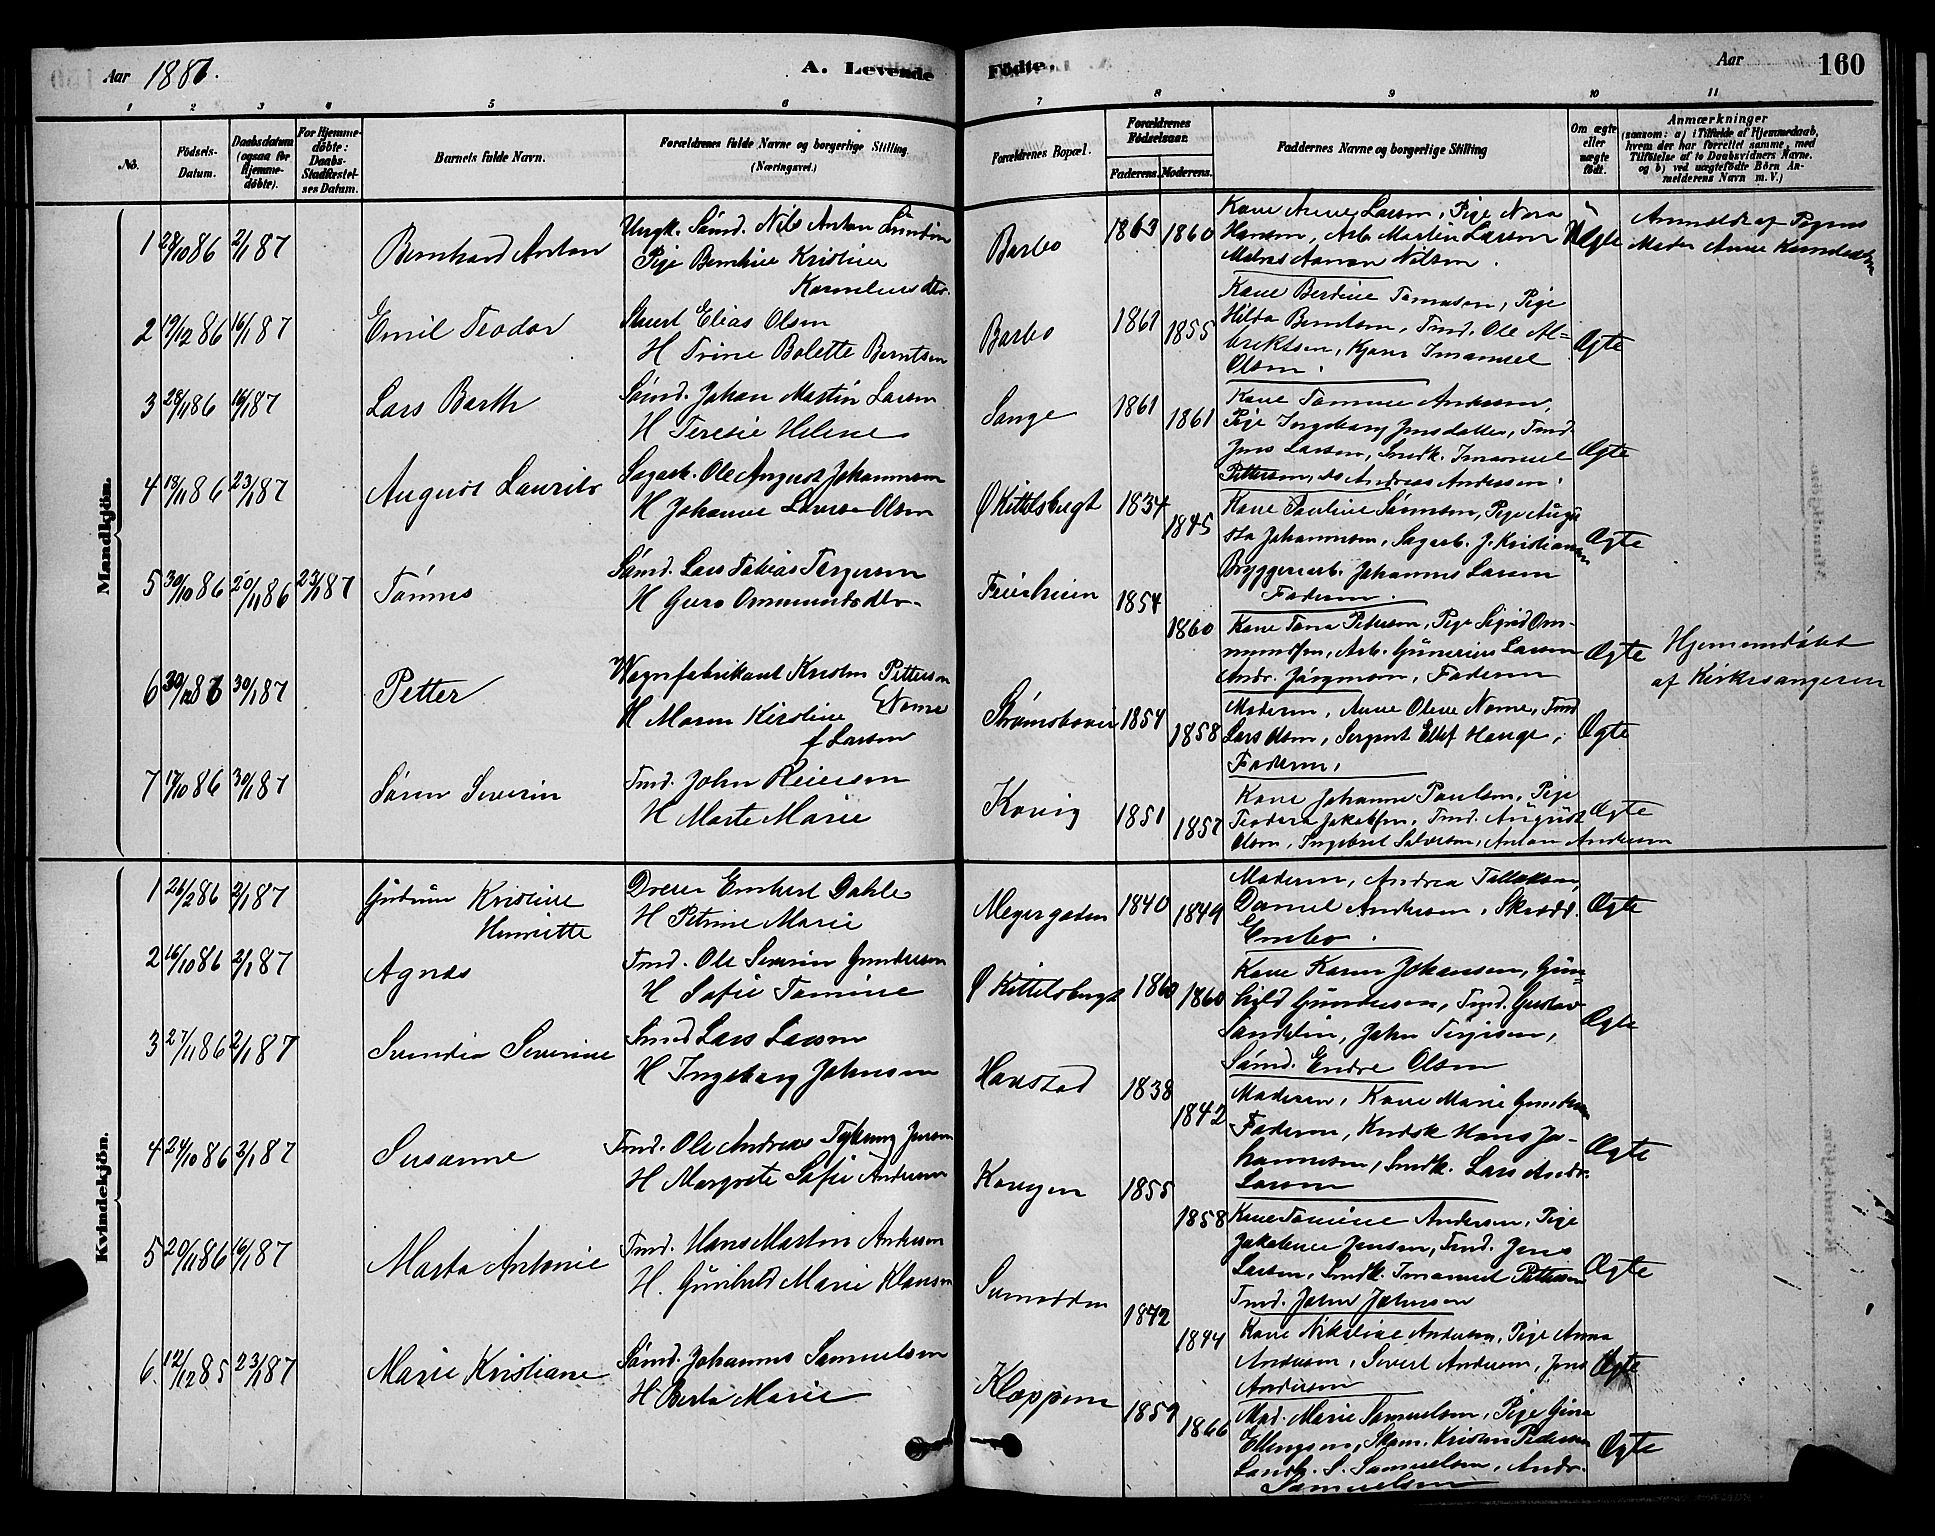 Aar 1887.
A. Levende Födte.
Aar
160
1 2 3 4 5 6 7 8 9 10 11
No.
Födsels-Datum.
Daabsdatum (ogsaa for Hjemme-döbte).
For Hjemme-döbte: Daabs-Stadfæstel-ses Datum.
Barnets fulde Navn.
Forældrenes fulde Navne og borgerlige Stilling (Næringsvei.)
Forældrenes Bopæl.
Forældrenes Födselsaar.
Faderens. Moderens.
Faddernes Navne og borgerlige Stilling
Om ægte eller uægte födt.
Anmærkninger
(saasom: a) i Tilfælde af Hjemmedaab,
hvem der har forrettet samme, med
Tilföielse af to Daabsvidners Navne.
og b) ved uægtefödte Börn An-
melderens Navn m. V.)
Mandkjön.
1 28/10 86 2/1 87 Bernhard Anton
Ungk. Sömd. Nils Anton Lundin
Pige Bernhine Kristine
Kornelius dtr.
Barbo 1863 1860
Kone Anne Larsen, Pige Nora
Hansen, Arb. Martin Larsen
Matros Aanon Nilsen.
Uægte
Anmeldt af Pigens
Moder Anne
2 19/12 86 16/1 87 Emil Teodor
Stuert Elias Olsen
H Trine Bolette Berntsen
Barbo 1861 1855
Kone Berdine Tomasen, Pige
Hilda Berntsen, Tmd. Ole Al-
brektsen, Imanuel
Olsen.
Ægte
3 28/11 86 16/1 87 Lars Barth
Sömd. Johan Martin Larsen
H Teresie Helene
Songe 1861 1861
Kone Tomine Andersen,
Pige Ingeborg Jensdatter, Tmd.
Jens Larsen, Smdk. Imanuel
Pettersen, do Andreas Andersen.
Ægte
4 18/11 86 23/1 87 August Laurits
Sagarb. Ole August Johannesen
H Johanne Lovise Olsen
Ø Kittelsbugt 1834 1845
Kone Pauline Sörensen, Pige Augu
sta Johannesen, Sagarb. J. Kristiansen
Bryggeriarb. Johannes Larsen
Faderen.
Ægte
5 30/10 86 20/11 86 23/1 87 Tönnes
Sömd. Lars Tobias Torgersen
H Guro Ommundsdtr.
Feierheien 1854 1860
Kone Tona Petersen, Pige Sigrid Om-
mundsen, Arb. Gunerius Larsen
Andr. Jörgensen, Faderen
Ægte
Hjemmedöbt
af Kirkesangeren
6 30/12 86 30/1 87 Petter
Vognfabrikant Kristen Pettersen
Nome
H Maren Kirstine
f Larsen
Strømsboneset 1854 1858
Moderen, Anne Olene Nome, Tmd
Lars Olsen, Sergent Ellef Hauge,
Faderen.
Ægte
7 17/10 86 30/1 87 Sören Severin
Tmd. John Reiersen
H Marte Marie
Kovig 1851 1857
Kone Johanne Paulsen, Pige
Teodora Jakobsen, Tmd. August
Olsen, Ingebret Salvesen, Anton Andersen
Ægte
Kvindekjön.
1 26/2 86 2/1 87 Gudrun Kristine
Henriette
Dreier Dahle
H Petrine Marie
Meyergaden 1840 1849
Moderen, Andrea Tellefsen,
Daniel Andersen, Skrædd.
Ægte
2 16/10 86 2/1 87 Agnes
Tmd. Ole Severin Gundersen
H Sofie Tomine
Ø Kittelsbugt 1860 1860
Kone Karen Johansen, Gun-
hild Gundersen, Tmd. Gustav
Sandelin, John Terjesen,
Sömd. Endre Olsen
Ægte
3 27/11 86 2/1 87 Severine
Smed Lars Larsen
H Ingeborg Johnsen
Havstad 1838 1842
Moderen, Kone Marie
Faderen, Kudsk Hans Jo-
hannesen, Smdk. Lars Andr.
Larsen
Ægte
4 24/10 86 2/1 87 Susanne
Tmd. Ole Andreas Jensen
H Margrete Sofie Andersen
1855 1858
Kone Tomine Andersen, Pige
Jakobine Jensen, Tmd. Jens
Larsen, Smdk. Imanuel Pettersen
Tmd. John Johnsen
Ægte
5 20/11 86 16/1 87 Marta Antonie
Tmd. Hans Martin Andersen
H. Gunhild Marie Klausen
1842 1844
Kone Nikoline Andersen, Pige Anna
Andersen, Sivert Andersen, Jens
Andersen
Ægte
6. 12/12 85 23/1 87 Marie Kristiane
Sömd. Johannes Samuelsen
H Berta Marie
Kloppene 1859 1866
Mad. Marie Samuelsen, Pige Gina
Ellingsen, Skom. Kristen Pedersen
Landh. S. Samuelsen, Andr.
Samuelsen
Ægte